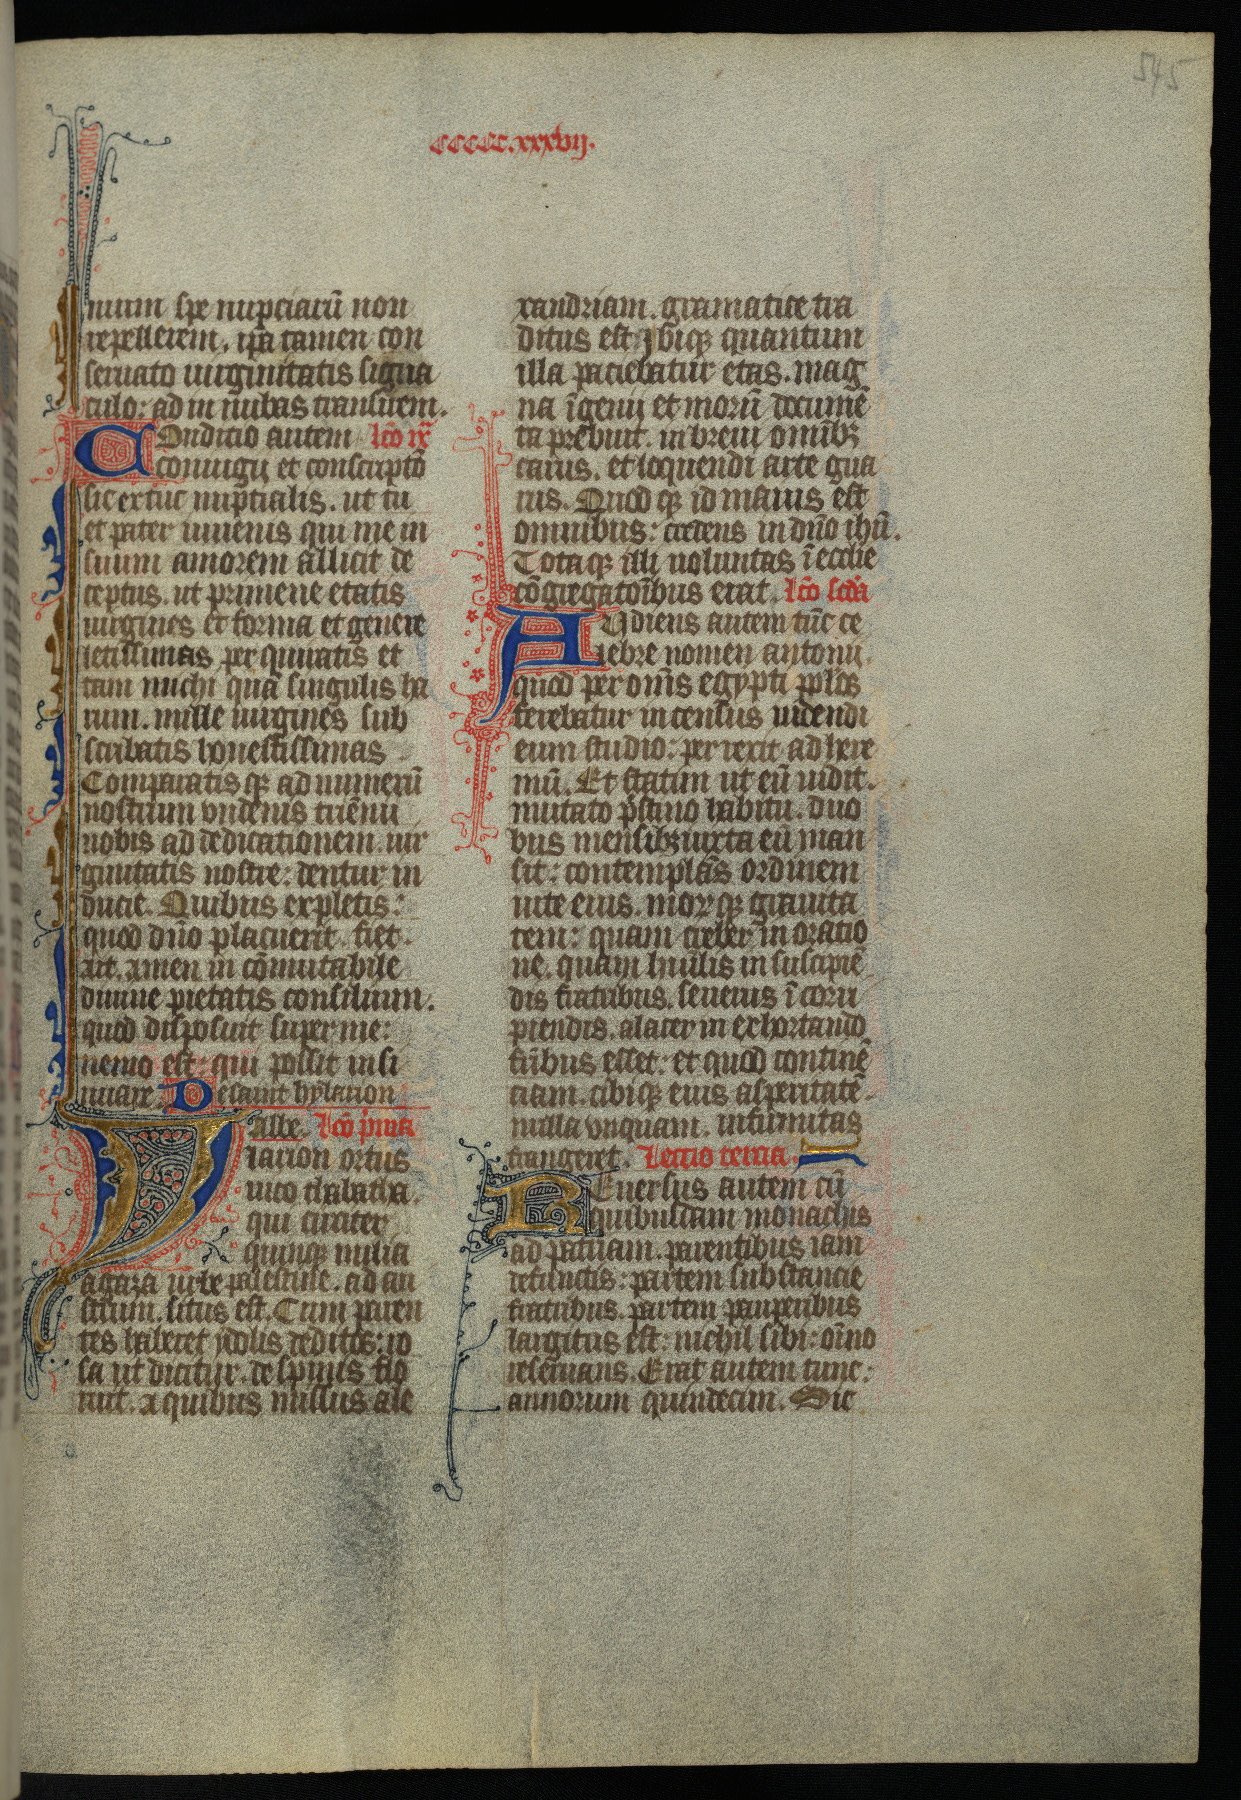 545
ccccc.xxxvij.
nuum spe nupciarū non
repellerem. ip̄a tamen con
seruato uirginitatis signa
culo: ad in nubas transuem.
Conditio autem lc̄o ix̄
coniugij et conscriptō
sic ex tuc nuptialis. ut tu
et pater iuuenis qui me in
suum amorem allicit de
ceptus. ut primeue etatis
uirgines et forma et genere
lectissimas per quiuatis et
tam michi quā singulis ha
rum. mille uirgines sub
scribatis honestissimas
Comparatis qȝ ad numerū
nostrum vndenis triēnij
nobis ad dedicationem uir
ginitatis nostre: dentur in
ducie. Quibus expletis:
quod dn̄o placuerit. fiet.
Ait. amen in cōmutabile
diuine pietatis consilium.
quod disposuit super me:
nemo est: qui possit in si
nuare. De saint hylarion
Abbe. lc̄o p̄ma
Ylarion ortus
uico thabatha.
qui circiter
quinqȝ milia
agaza urbe palestine. ad au
strum. situs est. Cum paren
tes haberet ydolis deditos: ro
sa ut dicitur. de spinis flo
ruit. a quibus missus ale
xandriam. gramatice tra
ditus est. ybiqȝ quantum
illa paciebatur etas. mag
na īgenij et morū documē
ta prebuit. in breui omībȝ
carus. et loquendi arte gna
rus. Quod qȝ id maius est
omnibus: credens in dn̄o ihū.
Totaqȝ illi uoluntas ī ecclie
cōgregatoībus erat. lc̄o scd̄a
Audiens autem tūc ce
lebre nomen antonii.
quod per om̄s egypti pp̄los
ferebatur incensus uidendi
eum studio: perrexit ad here
mū. Et statim ut eū uidit.
mutato p̄stino habitu. duo
bus mensibȝ iuxta eū man
sit: contemplās ordinem
uite eius. morūqȝ grauita
tem: quam creber in oratio
ne. quam hūilis in suscipiē
dis fratribus. seuerus ī corri
piendis. alacer in exhortando
frībus esset: et quod continē
ciam. cibiqȝ eius asperitatē.
nulla vnquam. infirmitas
frangeret. Lectio tercia.
Reuersus autem cū
quibusdam monachis
ad patriam. parentibus iam
defunctis: partem substancie
fratribus. partem pauperibus
largitus est: nichil sibi: oīno
reseruans. Erat autem tunc:
annorum quindecim. Sic